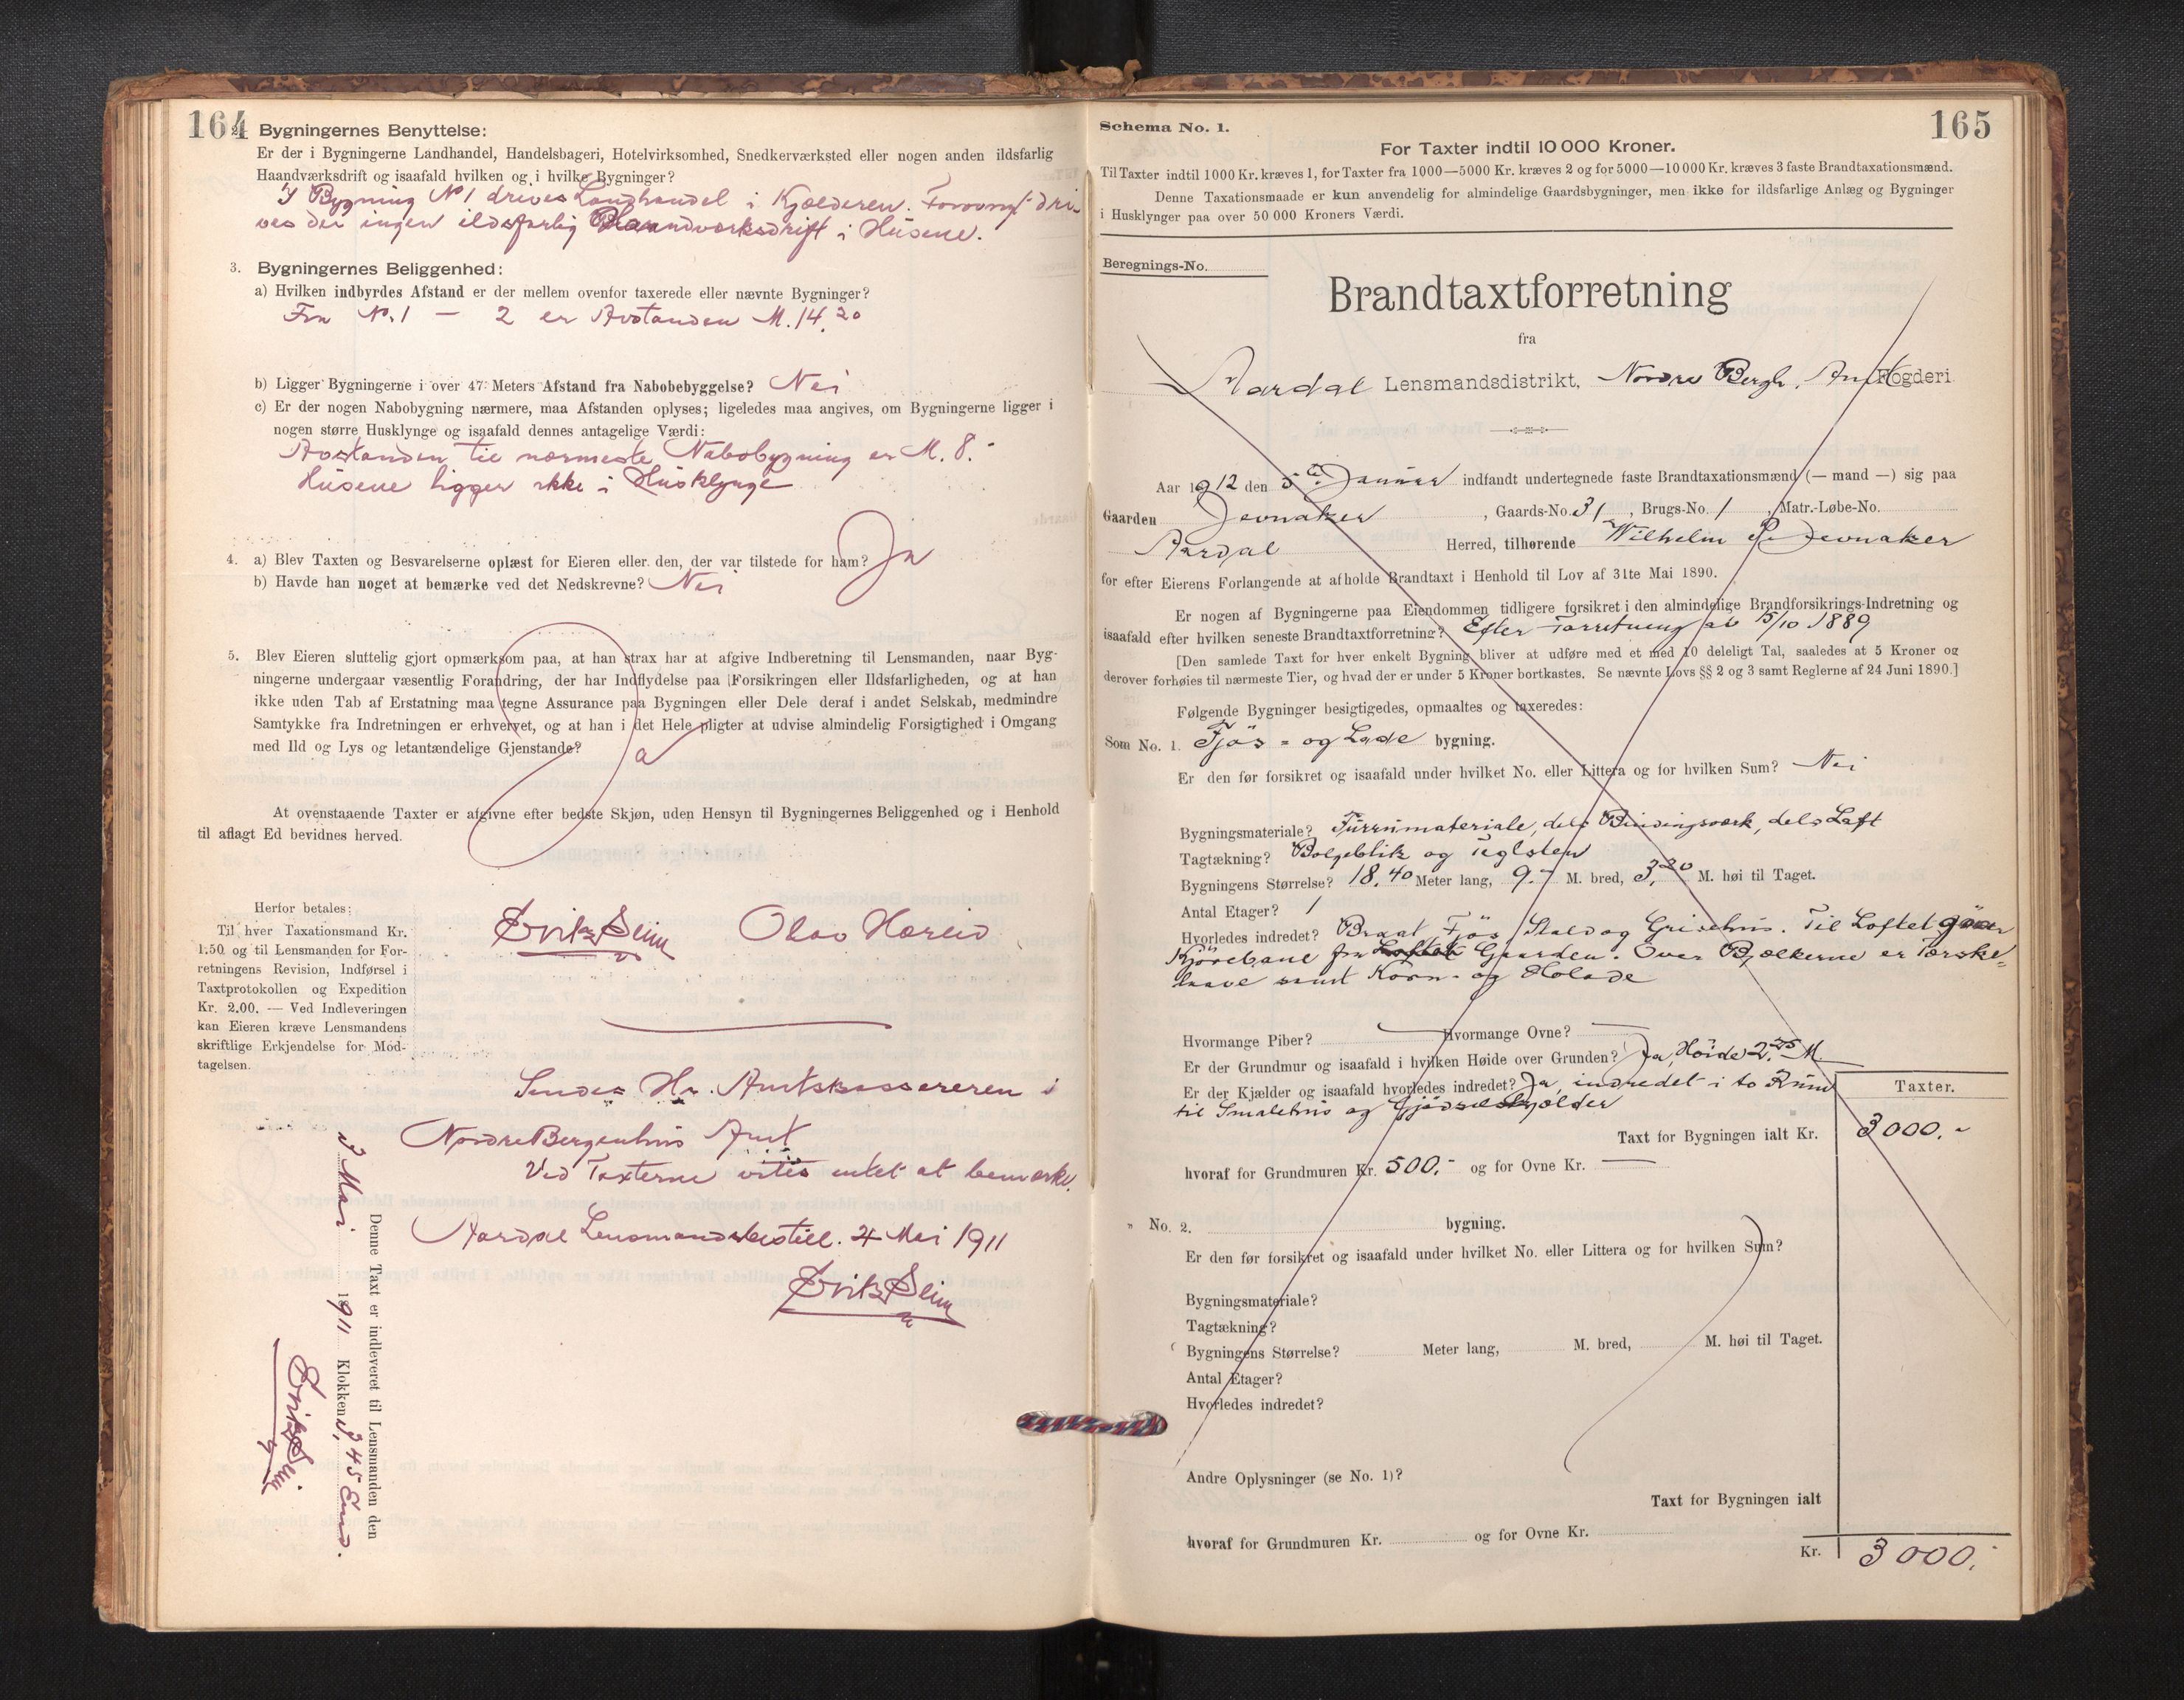 164
Bygningernes Benyttelse:
Er der i Bygningerne Landhandel, Handelsbageri, Hotelvirksomhed, Snedkerværksted eller nogen anden ildsfarlig
Haandværksdrift og isaafald hvilken og i hvilke Bygninger?
I Bygning No 1 drives Landhandel i Kjælderen. Forøvrigt dri-
ves der ingen ildsfarlig Haandværksdrift i Husene.
3. Bygningernes Beliggenhed:
a) Hvilken indbyrdes Afstand er der mellem ovenfor taxerede eller nævnte Bygninger?
Fra No. 1 – 2 er Avstanden M. 14.20
b) Ligger Bygningerne i over 47 Meters Afstand fra Nabobebyggelse? Nei
c) Er der nogen Nabobygning nærmere, maa Afstanden oplyses; ligeledes maa angives, om Bygningerne ligger i
nogen større Husklynge og isaafald dennes antagelige Værdi:
Avstanden til nærmeste Nabobygning er M. 8.-
Husene ligger ikke i Husklynge
4. a) Blev Taxten og Besvarelserne oplæst for Eieren eller den, der var tilstede for ham? Ja
b) Havde han noget at bemærke ved det Nedskrevne? Nei
5. Blev Eieren sluttelig gjort opmærksom paa, at han strax har at afgive Indberetning til Lensmanden, naar Byg-
ningerne undergaar væsentlig Forandring, der har Indflydelse paa Forsikringen eller Ildsfarligheden, og at han
ikke uden Tab af Erstatning maa tegne Assurance paa Bygningen eller Dele deraf i andet Selskab, medmindre
Samtykke fra Indretningen er erhvervet, og at han i det Hele pligter at udvise almindelig Forsigtighed i Omgang
med Ild og Lys og letantændelige Gjenstande?
Ja
At ovenstaaende Taxter er afgivne efter bedste Skjøn, uden Hensyn til Bygningernes Beliggenhed og i Henhold
til aflagt Ed bevidnes herved.
Herfor betales:
Til hver Taxationsmand Kr.
1.50 og til Lensmanden for For-
retningens Revision, Indførsel i
Taxtprotokollen og Expedition
Kr. 2.00. — Ved Indleveringen
kan Eieren kræve Lensmandens
skriftlige Erkjendelse for Mod-
tagelsen.
Erik Seim Olav Hæreid
Sendes Hr. Amtskassereren i
Nordre Bergenhus Amt
Ved Taxterne vites intet at bemærke.
Aardal Lensmandsbestill. 4 Mai 1911
Erik Seim
Denne Taxt er indleveret til Lensmanden den
3 Mai 1911 Klokken 3,45 Emd.
Erik Seim
165
Schema No. 1.
For Taxter indtil 10 000 Kroner.
Til Taxter indtil 1000 Kr. kræves 1, for Taxter fra 1000—5000 Kr. kræves 2 og for 5000—10 000 Kr. kræves 3 faste Brandtaxationsmænd.
Denne Taxationsmaade er kun anvendelig for almindelige Gaardsbygninger, men ikke for ildsfarlige Anlæg og Bygninger
i Husklynger paa over 50 000 Kroners Værdi.
Beregnings-No.
Brandtaxtforretning
fra
Aardal Lensmandsdistrikt, Nordre Bergh. Amt Fogderi
Aar 1912 den 5te Januar indfandt undertegnede faste Brandtaxationsmænd (— mand —) sig paa
Gaarden Jevnaker, Gaards-No. 31, Brugs-No. 1, Matr.-Løbe-No.
Aardal Herred, tilhørende Wilhelm P. Jevnaker
for efter Eierens Forlangende at afholde Brandtaxt i Henhold til Lov af 31te Mai 1890.
Er nogen af Bygningerne paa Eiendommen tidligere forsikret i den almindelige Brandforsikrings-Indretning og
isaafald efter hvilken seneste Brandtaxtforretning? Efter Forretning av 15/10 1889
[Den samlede Taxt for hver enkelt Bygning bliver at udføre med et med 10 deleligt Tal, saaledes at 5 Kroner og
derover forhøies til nærmeste Tier, og hvad der er under 5 Kroner bortkastes. Se nævnte Lovs §§ 2 og 3 samt Reglerne af 24 Juni 1890.]
Følgende Bygninger besigtigedes, opmaaltes og taxeredes:
Som No. 1. Fjøs- og Lade bygning.
Er den før forsikret og isaafald under hvilket No. eller Littera og for hvilken Sum? Nei
Bygningsmateriale? Furrumateriale, dels Bindingsværk, dels Laft
Tagtækning? Bølgeblik og Teglsten
Bygningens Størrelse? 18,40 Meter lang, 9.- M. bred, 3,20 M. høi til Taget.
Antal Etager? 1
Hvorledes indredet? Fjøs Stald og Grisehus. Til Loftet gaar
Kjørebane fra Gaarden. Over Bjælkerne er Tærske-
laave samt Korn- og Hølade
Hvormange Piber? — Hvormange Ovne? —
Er der Grundmur og isaafald i hvilken Høide over Grunden? Ja, Høide 2,25 M.
Er der Kjælder og isaafald hvorledes indredet? Ja, indredet i to Rum
til Smalehus og Gjødselkjælder
Taxter.
Taxt for Bygningen ialt Kr. 3000.-
hvoraf for Grundmuren Kr. 500.- og for Ovne Kr. —
" No. 2. bygning.
Er den før forsikret og isaafald under hvilket No. eller Littera og for hvilken Sum?
Bygningsmateriale?
Tagtækning?
Bygningens Størrelse? Meter lang, M. bred, M. høi til Taget.
Antal Etager?
Hvorledes indredet?
Andre Oplysninger (se No. 1)?
Taxt for Bygningen ialt
hvoraf for Grundmuren Kr. og for Ovne Kr.
Kr. 3000.-